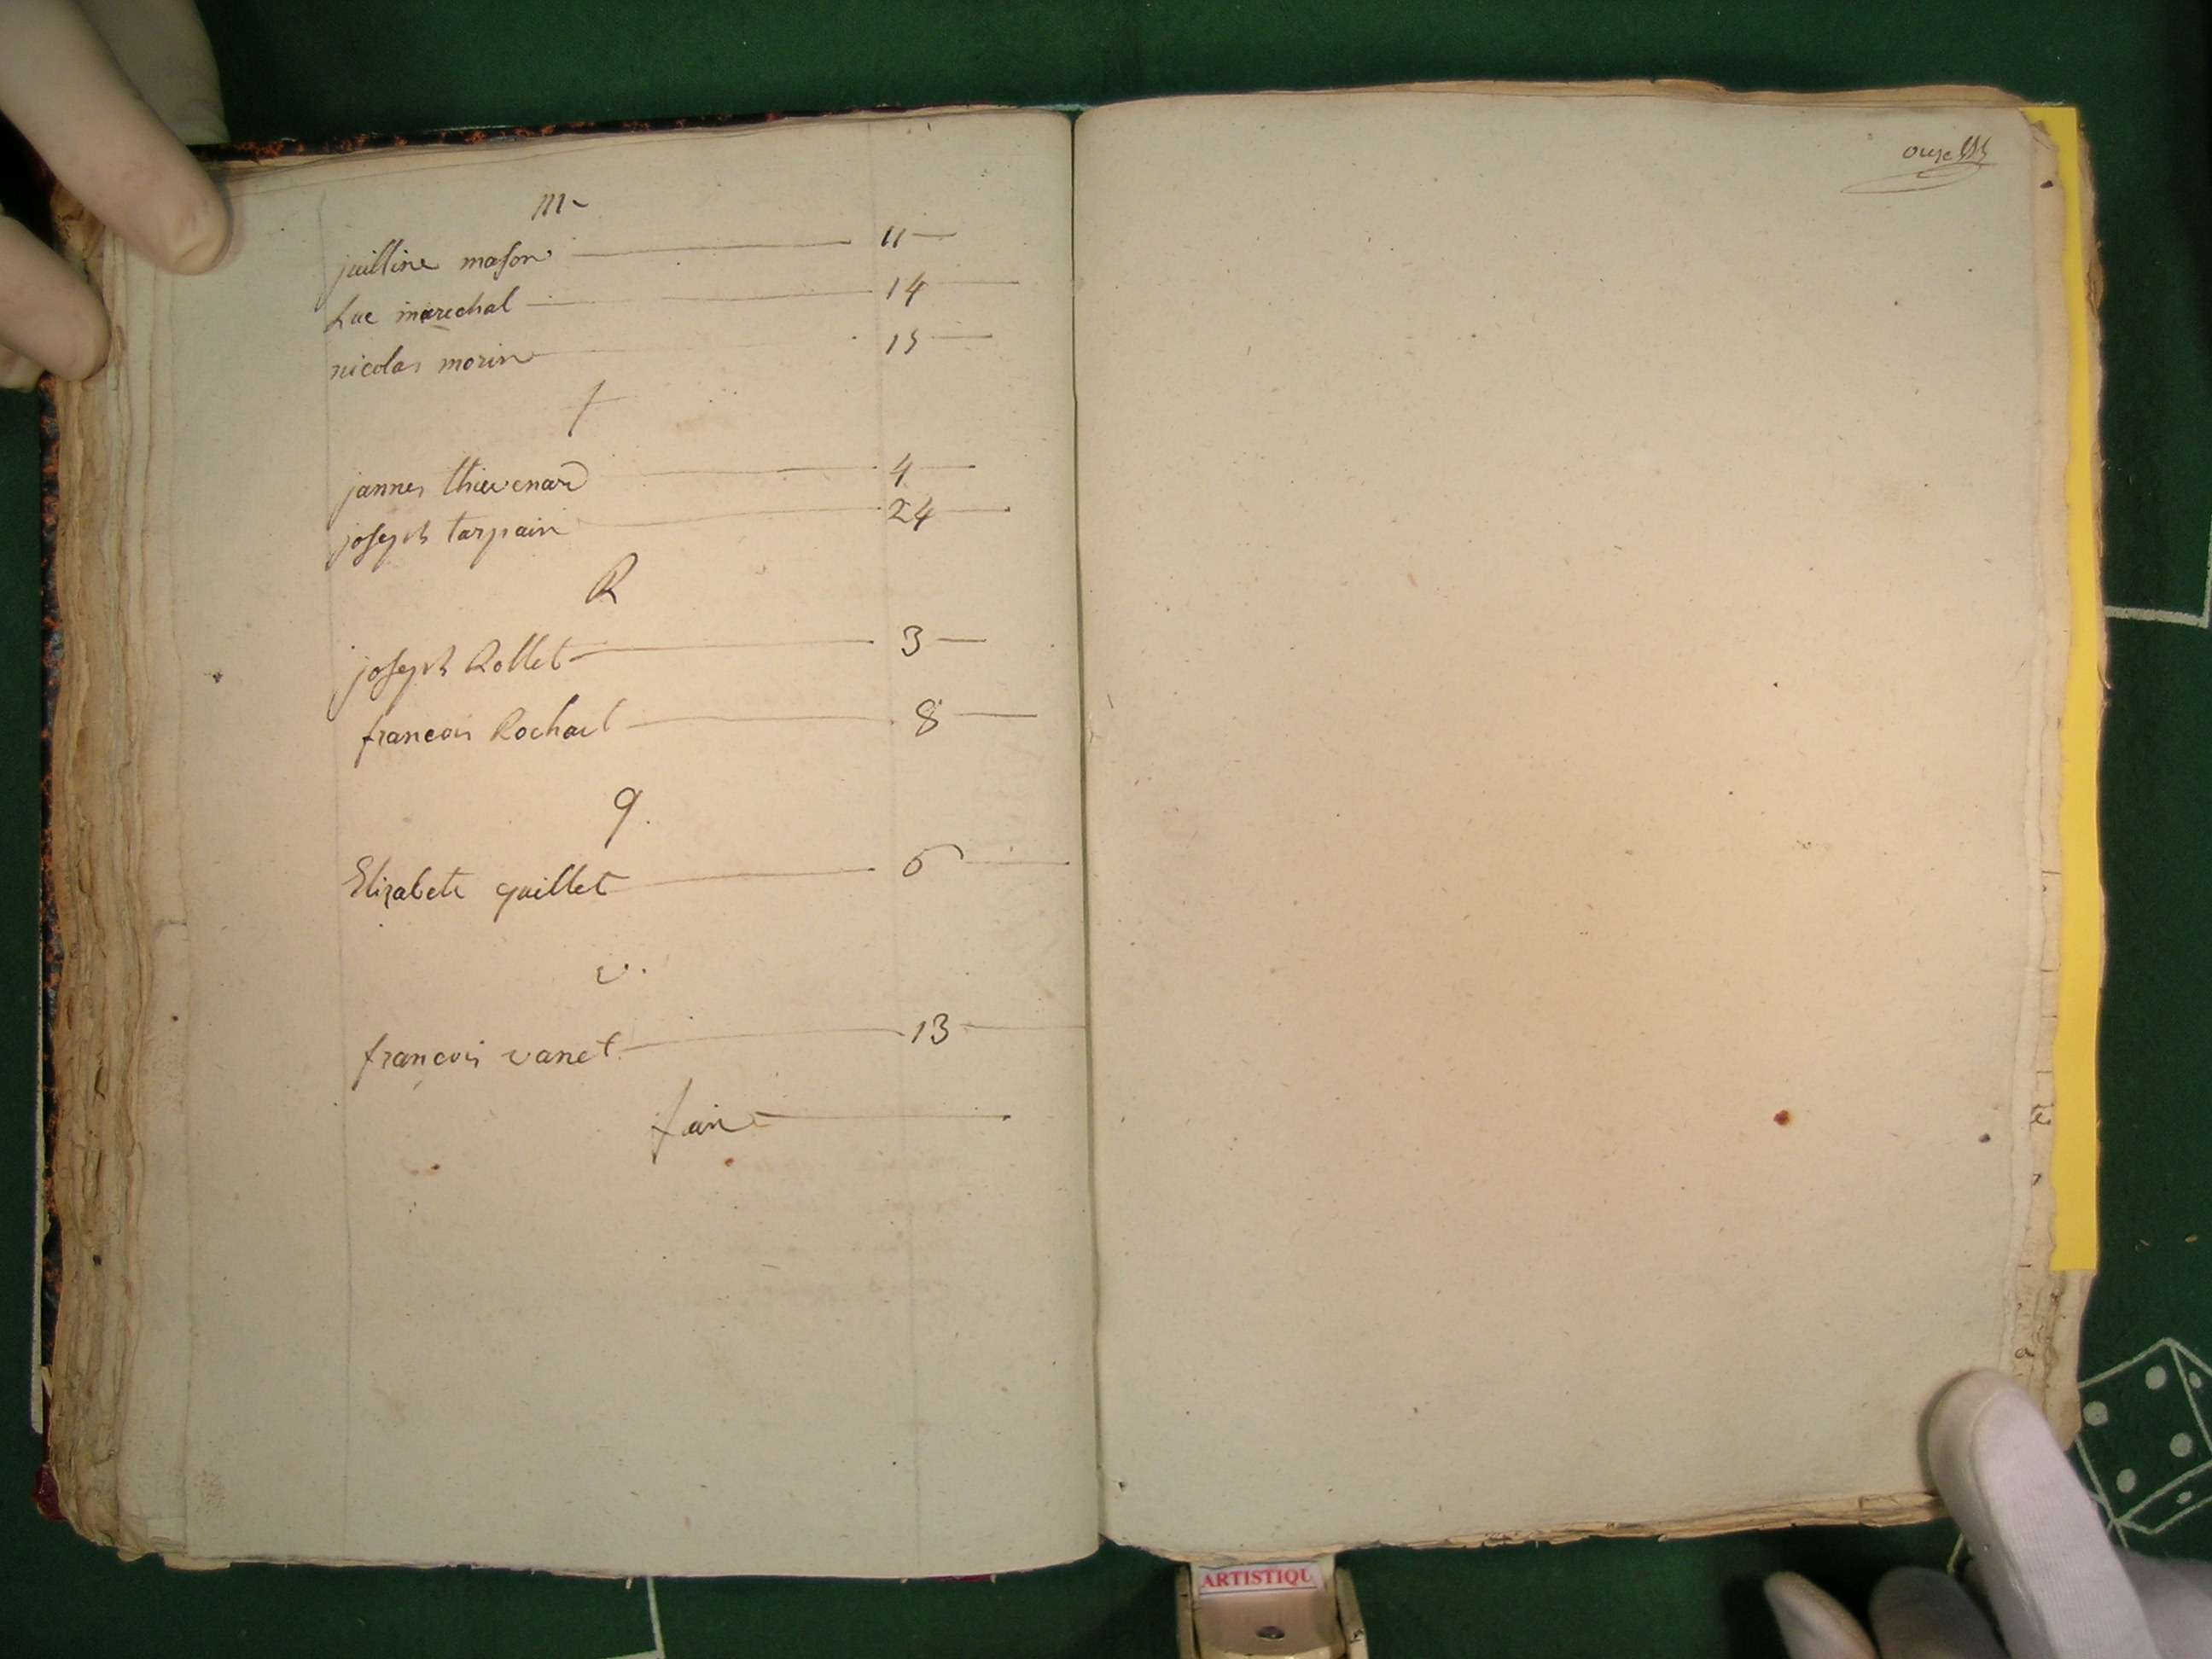 m
juilline mason 11
Luc marechal 14
nicolas morin 15
t
jannes thievenard 4
joseph tarpain 24
R
joseph Rollet 3
francois Rochael 8
q.
Elizabete quillet 6
v.
francois vanet 13
fain
onze
ARTISTIQU